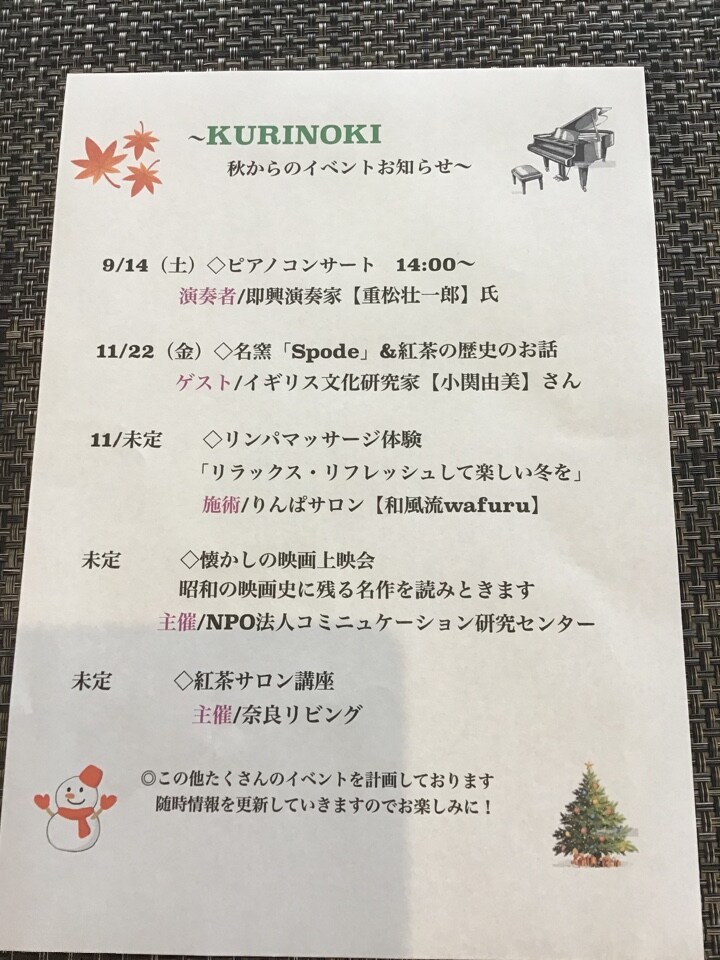 ~KURINOKI
秋からのイベントお知らせ～
9/14（土）◇ピアノコンサート　14:00～
演奏者/即興演奏家【重松壮一郎】氏
11/22（金）◇名窯「Spode」&紅茶の歴史のお話
ゲスト/イギリス文化研究家【小関由美】さん
11/未定　◇リンパマッサージ体験
「リラックス・リフレッシュして楽しい冬を」
施術/りんぱサロン【和風流wafuru】
未定　◇懐かしの映画上映会
昭和の映画史に残る名作を読みときます
主催/NPO法人コミニュケーション研究センター
未定　◇紅茶サロン講座
主催/奈良リビング
◎この他たくさんのイベントを計画しております
随時情報を更新していきますのでお楽しみに！